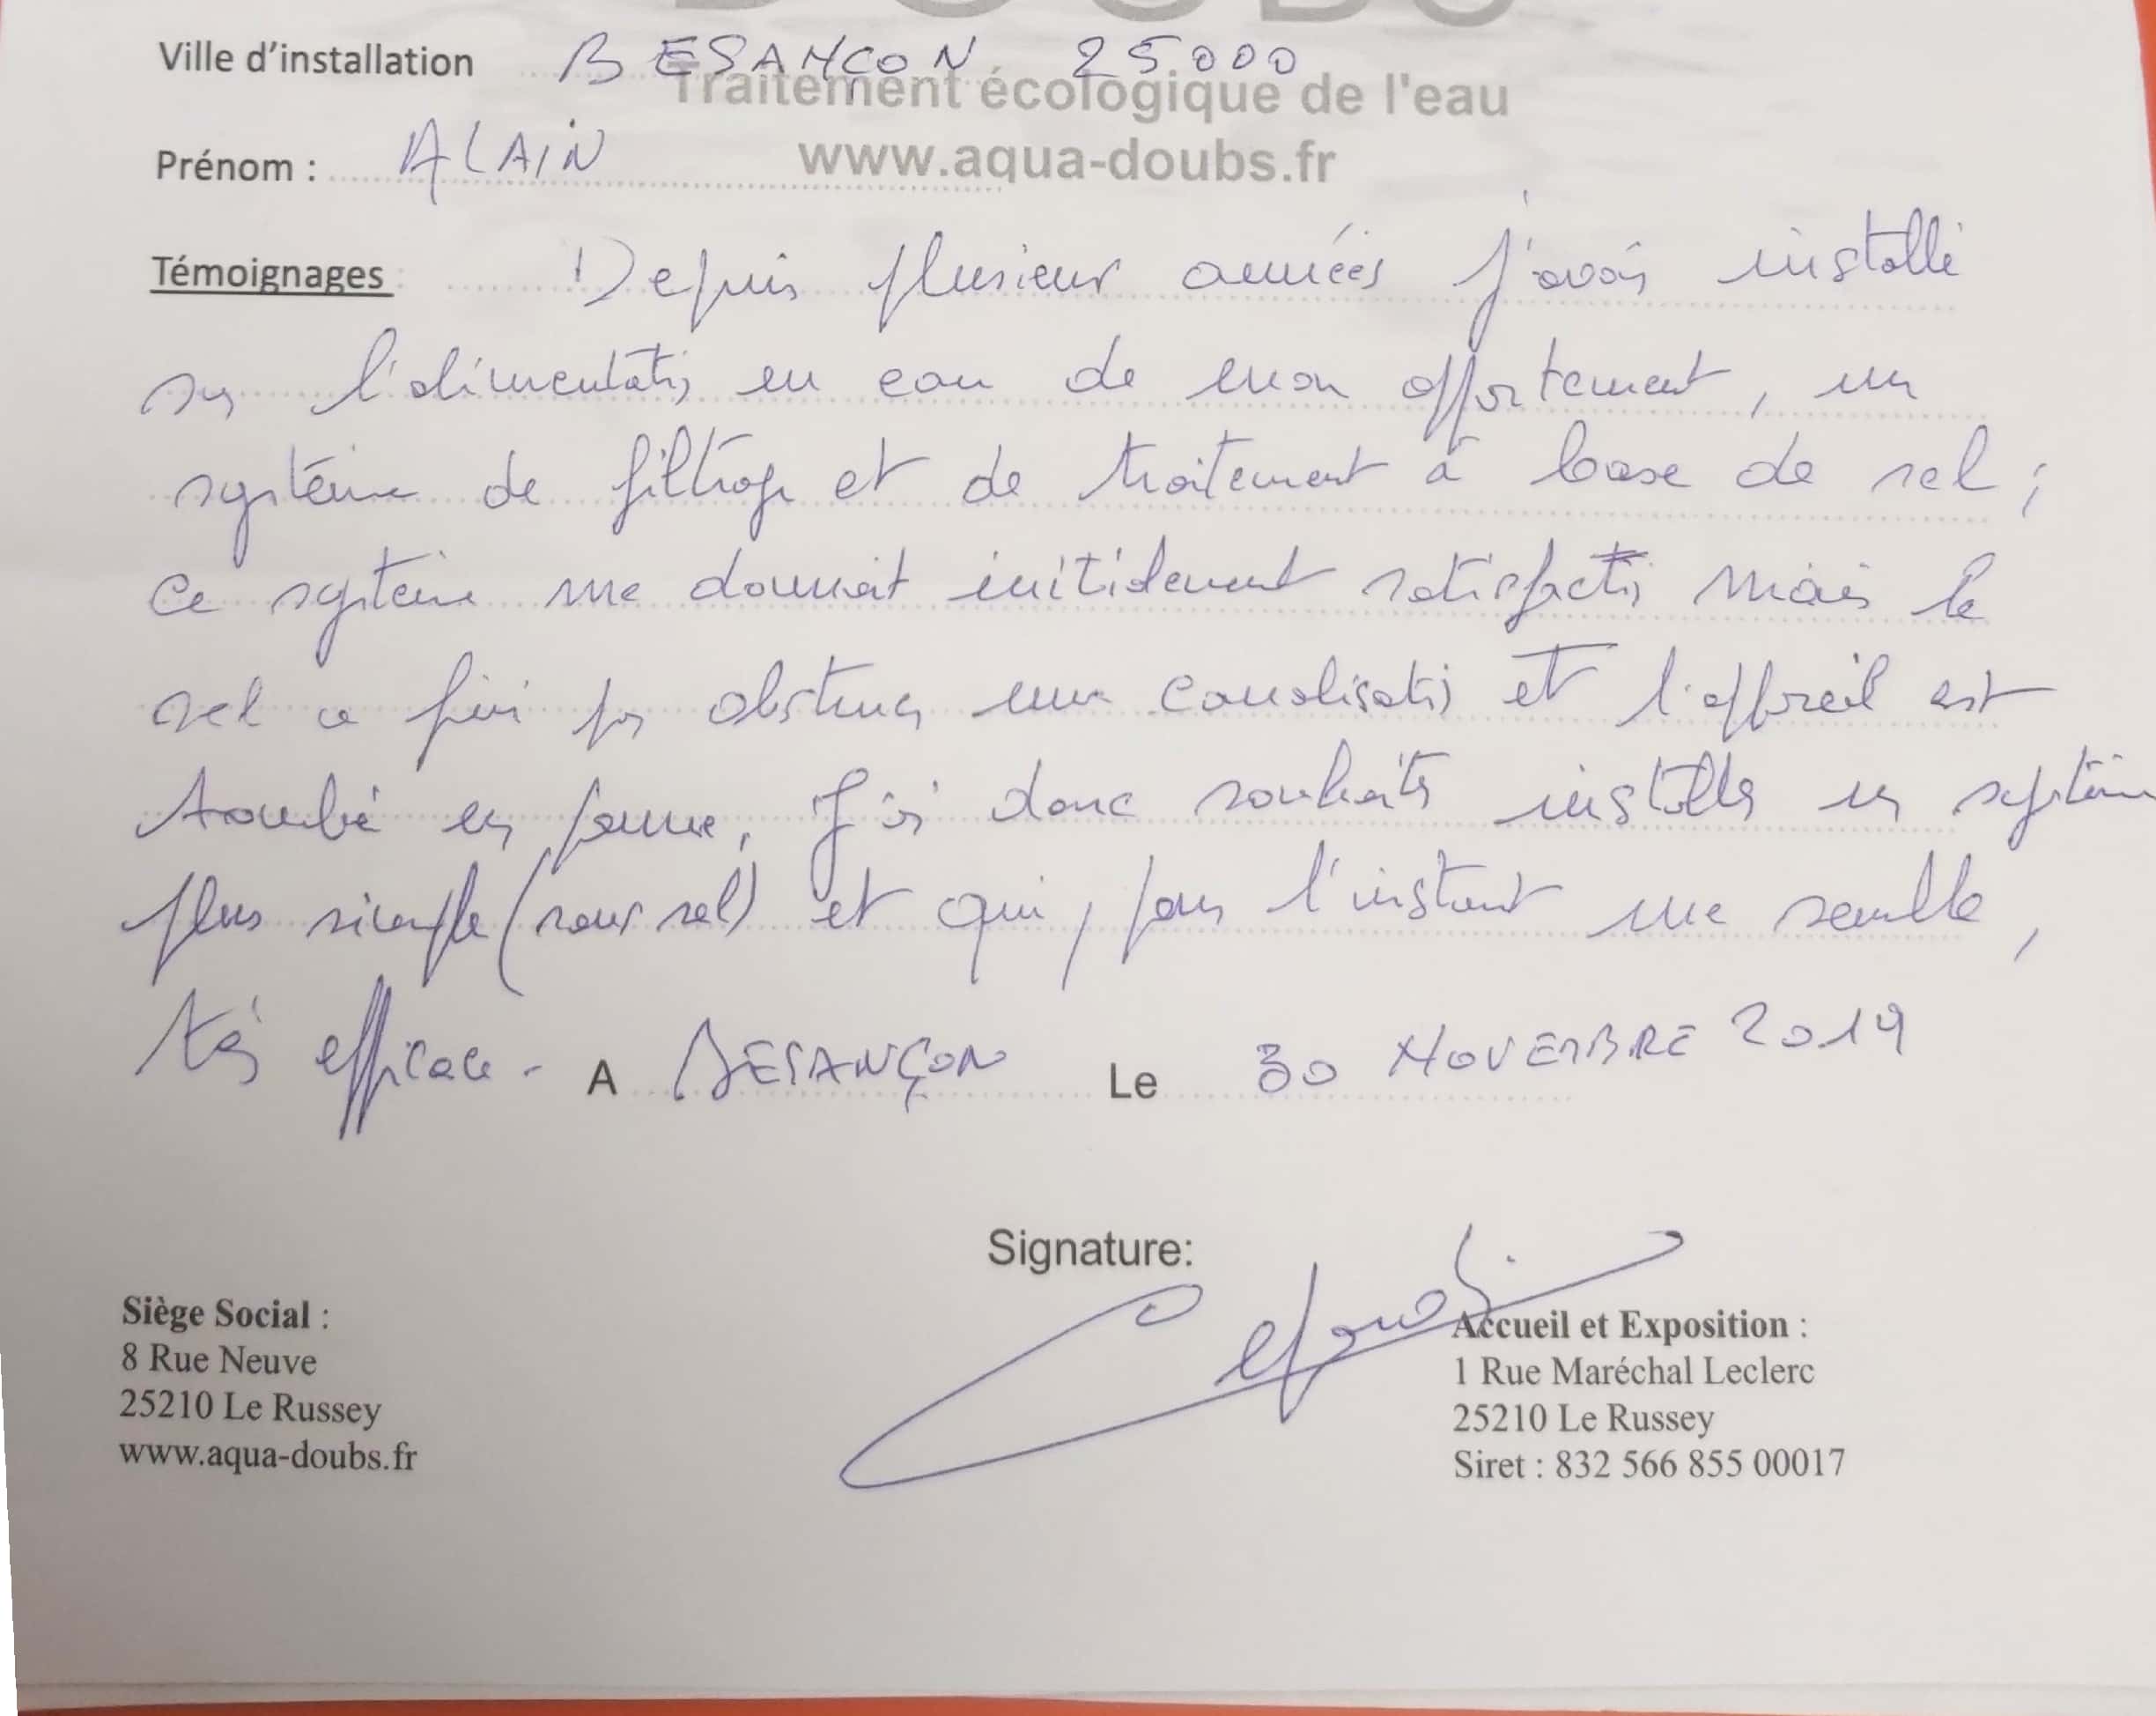 DOUBS
Ville d'installation BESANÇON 25000
Traitement écologique de l'eau
Prénom : ALAIN
www.aqua-doubs.fr
Témoignages : Depuis plusieur années j'avais installé
sur l'alimentation en eau de mon appartement, un
système de filtrage et de traitement à base de sel ;
Ce système me donnait initialement satisfaction mais le
sel a fini par obstruer une canalisation et l'appareil est
tombé en panne. J'ai donc souhaité installer un système
plus simple (sans sel) et qui, pour l'instant me semble,
très efficace - A BESANÇON Le 30 NOVEMBRE 2019
Signature:
Siège Social :
8 Rue Neuve
25210 Le Russey
www.aqua-doubs.fr
Accueil et Exposition :
1 Rue Maréchal Leclerc
25210 Le Russey
Siret : 832 566 855 00017